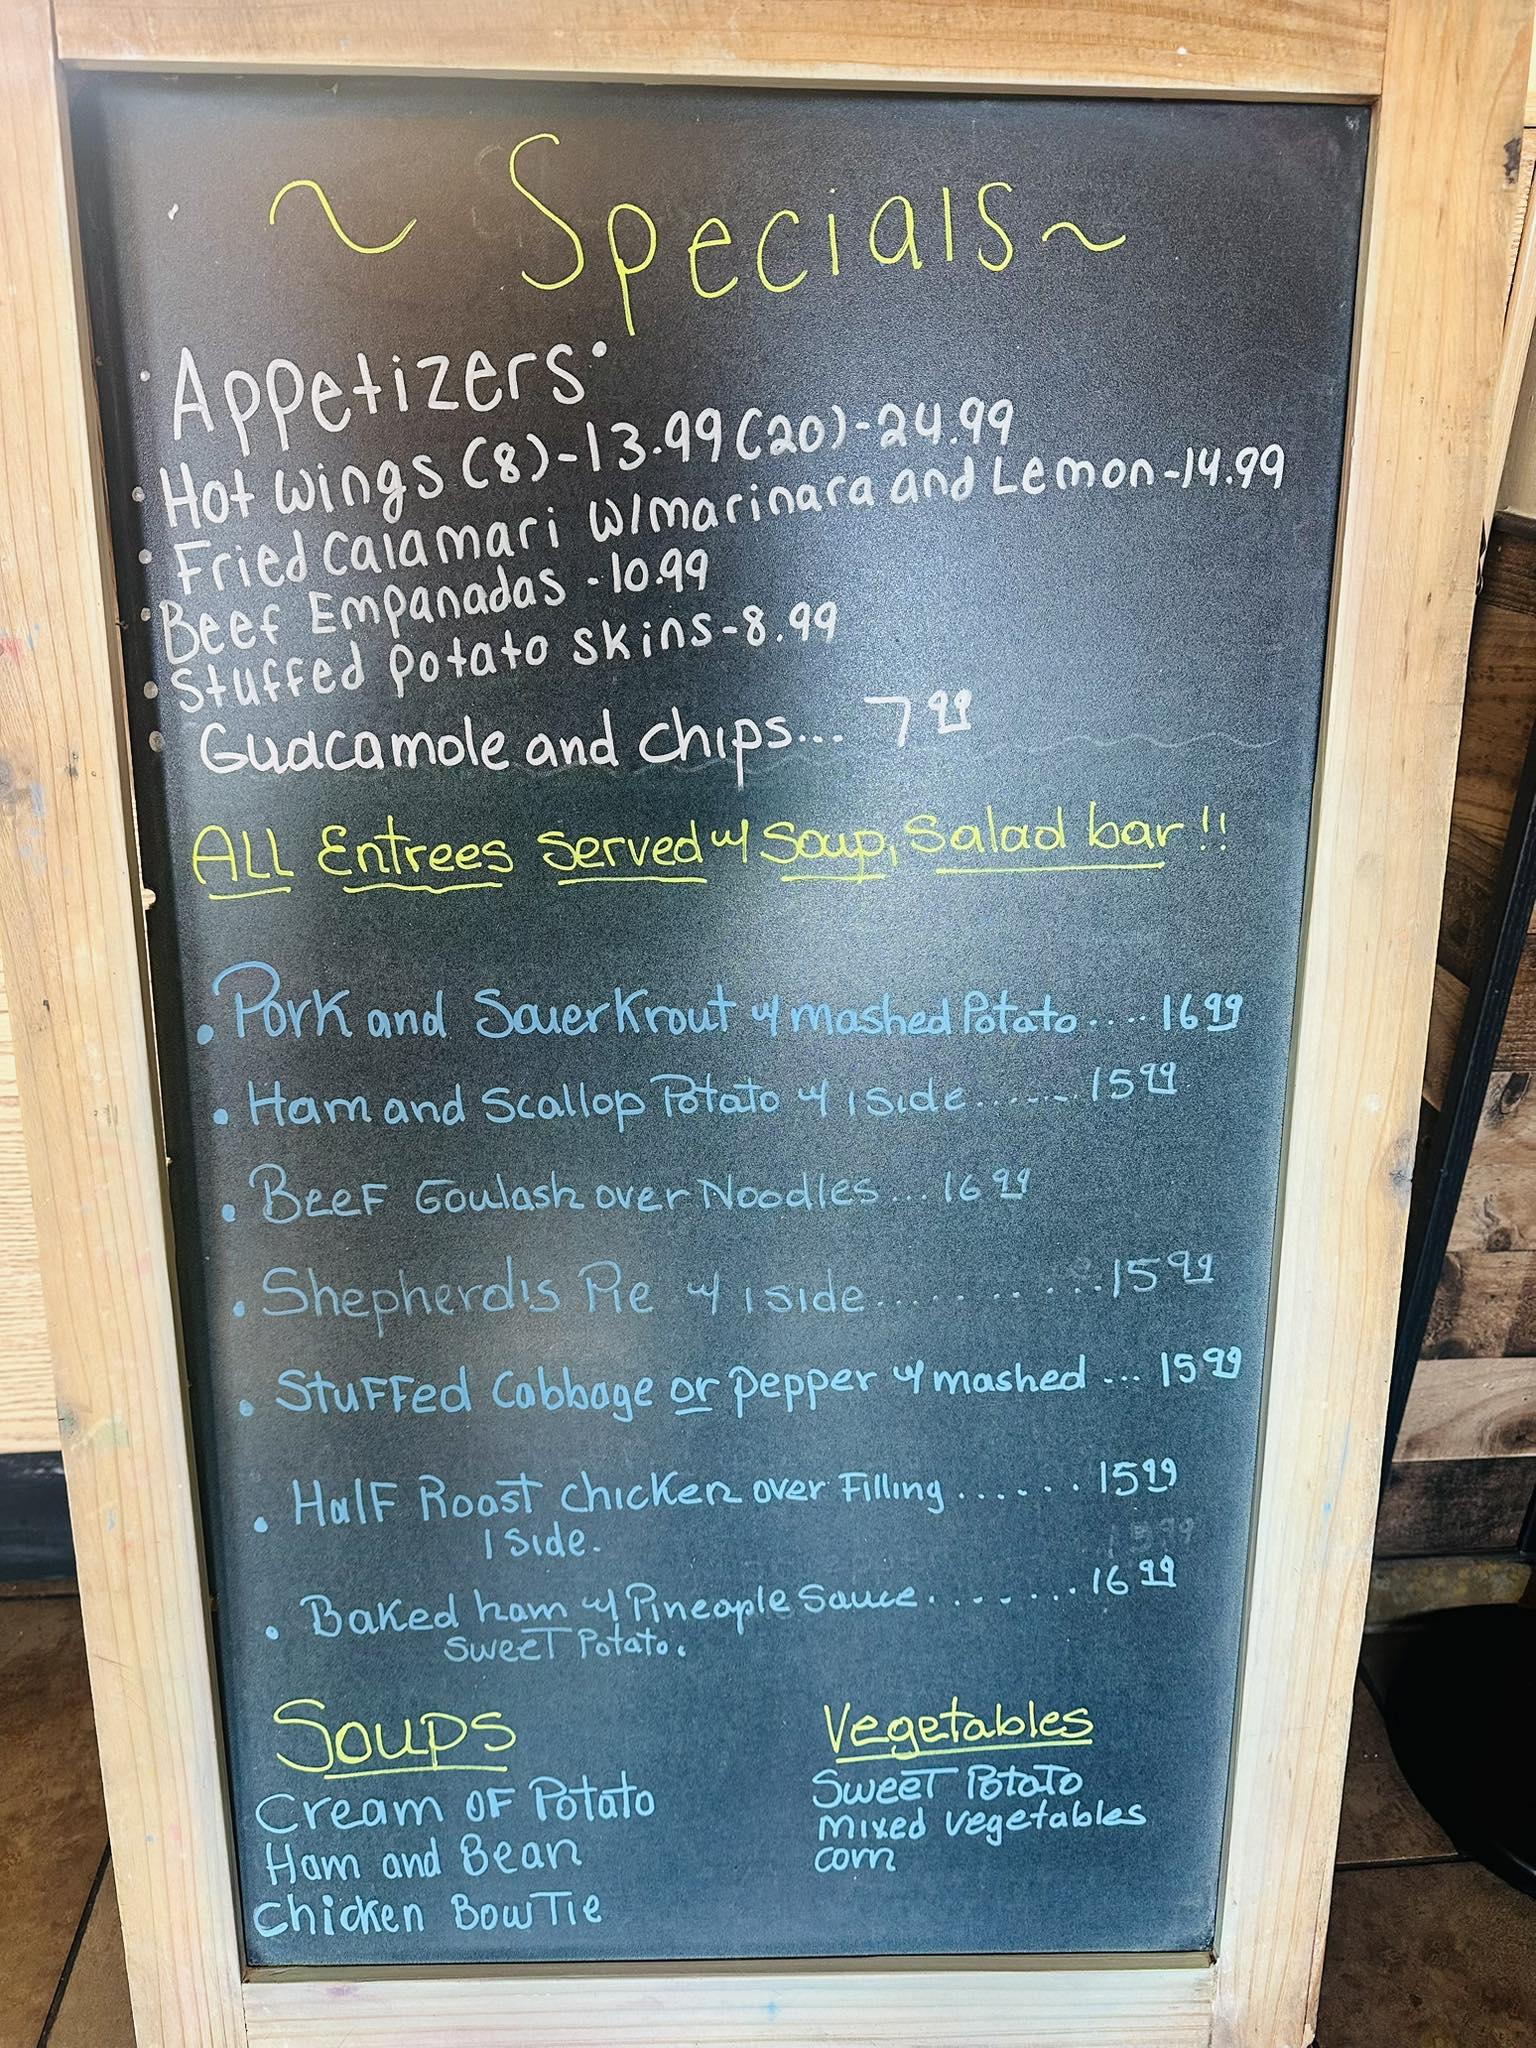 ~ Specials ~
Appetizers:
• Hot wings (8)-13.99 (20)-24.99
• Fried Calamari w/marinara and Lemon-14.99
• Beef Empanadas -10.99
• Stuffed potato skins-8.99
• Guacamole and chips... 7.99
ALL Entrees Served w/ Soup, Salad bar!!
• Pork and SauerKrout w/ mashed Potato.... 16.99
• Ham and Scallop Potato w/ 1 side....... 15.99
• Beef Goulash over Noodles... 16.99
• Shepherd's Pie w/ 1 side........... 15.99
• Stuffed Cabbage or pepper w/ mashed ... 15.99
• Half Roast chicken over Filling ...... 15.99
1 side.
15.99
• Baked ham w/ Pineapple Sauce....... 16.99
Sweet Potato.
Soups
Cream of Potato
Ham and Bean
Chicken BowTie
Vegetables
Sweet Potato
mixed vegetables
corn